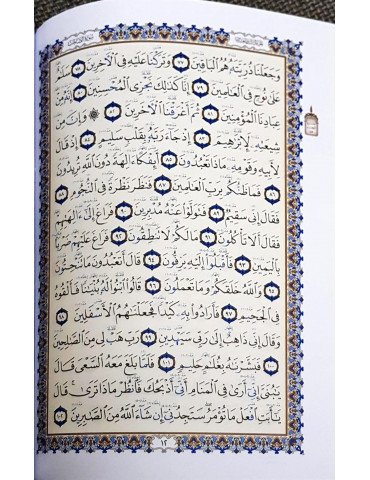 وَجَعَلْنَا ذُرِّيَّتَهُۥ هُمُ ٱلْبَاقِينَ ٧٧ وَتَرَكْنَا عَلَيْهِ فِى ٱلْءَاخِرِينَ ٧٨ سَلَٰمٌ
عَلَىٰ نُوحٍ فِى ٱلْعَٰلَمِينَ ٧٩ إِنَّا كَذَٰلِكَ نَجْزِى ٱلْمُحْسِنِينَ ٨٠ إِنَّهُۥ مِنْ
عِبَادِنَا ٱلْمُؤْمِنِينَ ٨١ ثُمَّ أَغْرَقْنَا ٱلْءَاخَرِينَ ٨٢ ۞ وَإِنَّ مِن
شِيعَتِهِۦ لَإِبْرَٰهِيمَ ٨٣ إِذْ جَآءَ رَبَّهُۥ بِقَلْبٍ سَلِيمٍ ٨٤ إِذْ قَالَ
لِأَبِيهِ وَقَوْمِهِۦ مَاذَا تَعْبُدُونَ ٨٥ أَئِفْكًا ءَالِهَةً دُونَ ٱللَّهِ تُرِيدُونَ
٨٦ فَمَا ظَنُّكُم بِرَبِّ ٱلْعَٰلَمِينَ ٨٧ فَنَظَرَ نَظْرَةً فِى ٱلنُّجُومِ ٨٨
فَقَالَ إِنِّى سَقِيمٌ ٨٩ فَتَوَلَّوْا۟ عَنْهُ مُدْبِرِينَ ٩٠ فَرَاغَ إِلَىٰٓ ءَالِهَتِهِمْ
فَقَالَ أَلَا تَأْكُلُونَ ٩١ مَا لَكُمْ لَا تَنطِقُونَ ٩٢ فَرَاغَ عَلَيْهِمْ ضَرْبًۢا
بِٱلْيَمِينِ ٩٣ فَأَقْبَلُوٓا۟ إِلَيْهِ يَزِفُّونَ ٩٤ قَالَ أَتَعْبُدُونَ مَا تَنْحِتُونَ
٩٥ وَٱللَّهُ خَلَقَكُمْ وَمَا تَعْمَلُونَ ٩٦ قَالُوا۟ ٱبْنُوا۟ لَهُۥ بُنْيَٰنًا فَأَلْقُوهُ
فِى ٱلْجَحِيمِ ٩٧ فَأَرَادُوا۟ بِهِۦ كَيْدًا فَجَعَلْنَٰهُمُ ٱلْأَسْفَلِينَ ٩٨
وَقَالَ إِنِّى ذَاهِبٌ إِلَىٰ رَبِّى سَيَهْدِينِ ٩٩ رَبِّ هَبْ لِى مِنَ ٱلصَّٰلِحِينَ
١٠٠ فَبَشَّرْنَٰهُ بِغُلَٰمٍ حَلِيمٍ ١٠١ فَلَمَّا بَلَغَ مَعَهُ ٱلسَّعْىَ قَالَ
يَٰبُنَىَّ إِنِّىٓ أَرَىٰ فِى ٱلْمَنَامِ أَنِّىٓ أَذْبَحُكَ فَٱنظُرْ مَاذَا تَرَىٰ ۚ قَالَ
يَٰٓأَبَتِ ٱفْعَلْ مَا تُؤْمَرُ ۖ سَتَجِدُنِىٓ إِن شَآءَ ٱللَّهُ مِنَ ٱلصَّٰبِرِينَ ١٠٢
١٢